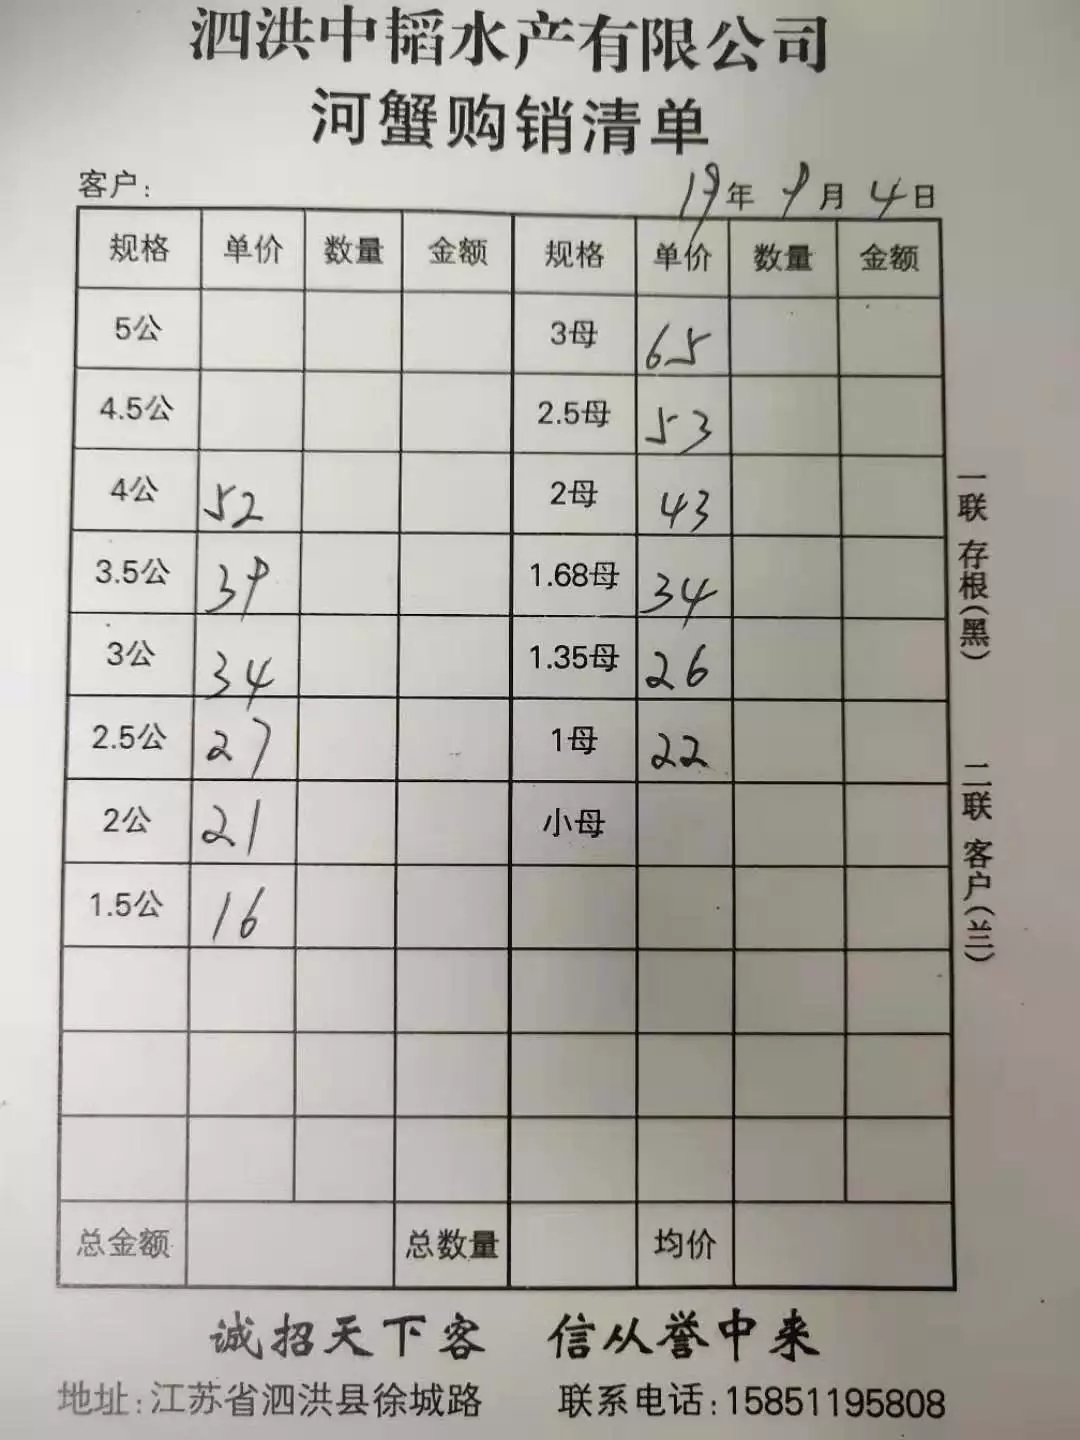 泗洪中韬水产有限公司
河蟹购销清单
客户: 19年9月4日
规格 单价 数量 金额 规格 单价 数量 金额
5公 3母 65
4.5公 2.5母 53
4公 52 2母 43
3.5公 39 1.68母 34
3公 34 1.35母 26
2.5公 27 1母 22
2公 21 小母
1.5公 16
总金额 总数量 均价
一联 存根(黑) 二联 客户(兰)
诚招天下客 信从誉中来
地址:江苏省泗洪县徐城路 联系电话:15851195808